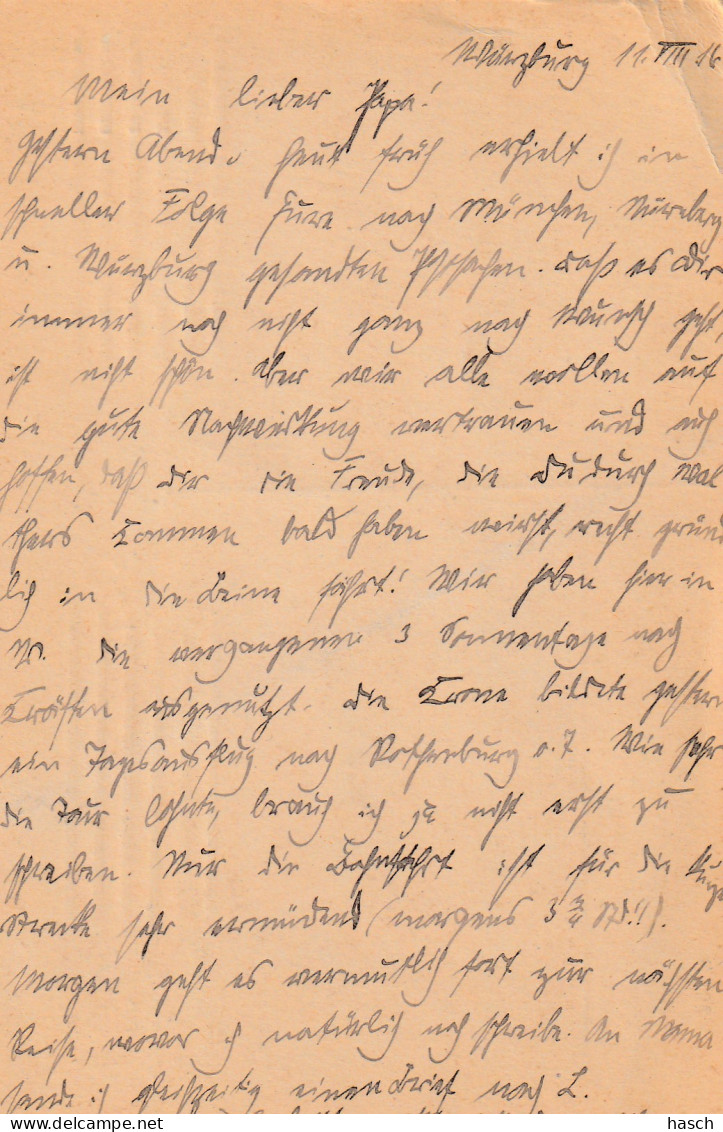 Würzburg 11. VIII 16
Mein lieber Papa!
Gestern Abend u. heut früh erhielt ich in
schneller Folge Eure nach München, Nürnberg
u. Würzburg gesandten Postsachen. Daß es Dir
immer noch nicht ganz nach Wunsch geht,
ist nicht schön. Aber wir alle wollen auf
die gute Nachwirkung vertrauen und auch
hoffen, daß Dir die Freude, die Du durch Wal
thers Kommen bald haben wirst, recht gründ
lich in die Beine fährt! Wir haben hier in
W. die vergangenen 3 Sonnentage nach
Kräften ausgenutzt. Die Krone bildete gestern
ein Tagesausflug nach Rothenburg o. T. Wie sehr
die Tour lohnte, brauch ich ja nicht erst zu
schreiben. Nur die Bahnfahrt ist für die kurze
Strecke sehr ermüdend (morgens 3 3/4 Std!!).
Morgen geht es vermutlich fort zur nächsten
Reise, wovor ich natürlich noch schreibe. An Mama
sende ich gleichzeitig einen Brief nach L.
hasch